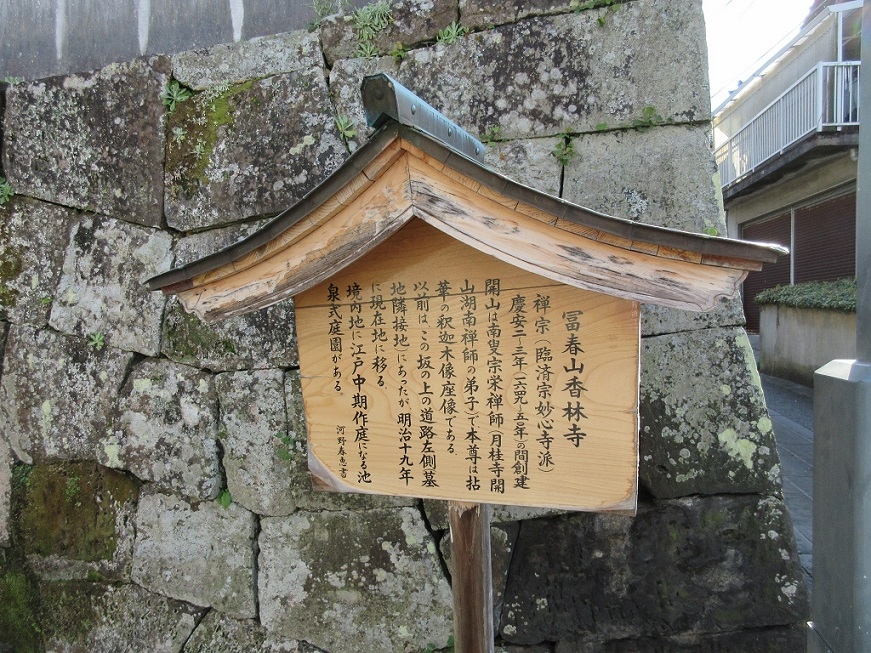 冨春山香林寺
禅宗（臨済宗妙心寺派）
慶安二～三年（一六四九～五〇年）の間創建
開山は南叟宗栄禅師（月桂寺開
山湖南禅師の弟子）で本尊は拈
華の釈迦木像座像である。
以前は、この坂の上の道路左側墓
地隣接地にあったが、明治十九年
に現在地に移る。
境内地に江戸中期作庭になる池
泉式庭園がある。
河野春邑書